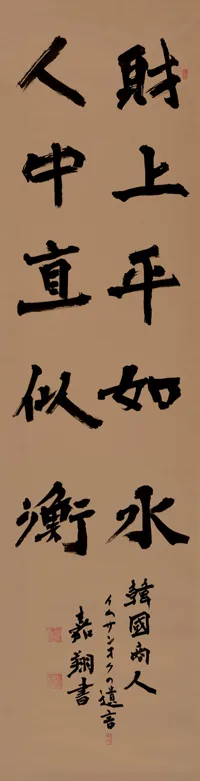 財上平如水
人中直似衡
韓國商人
イムサンオクの遺言
嘉翔書